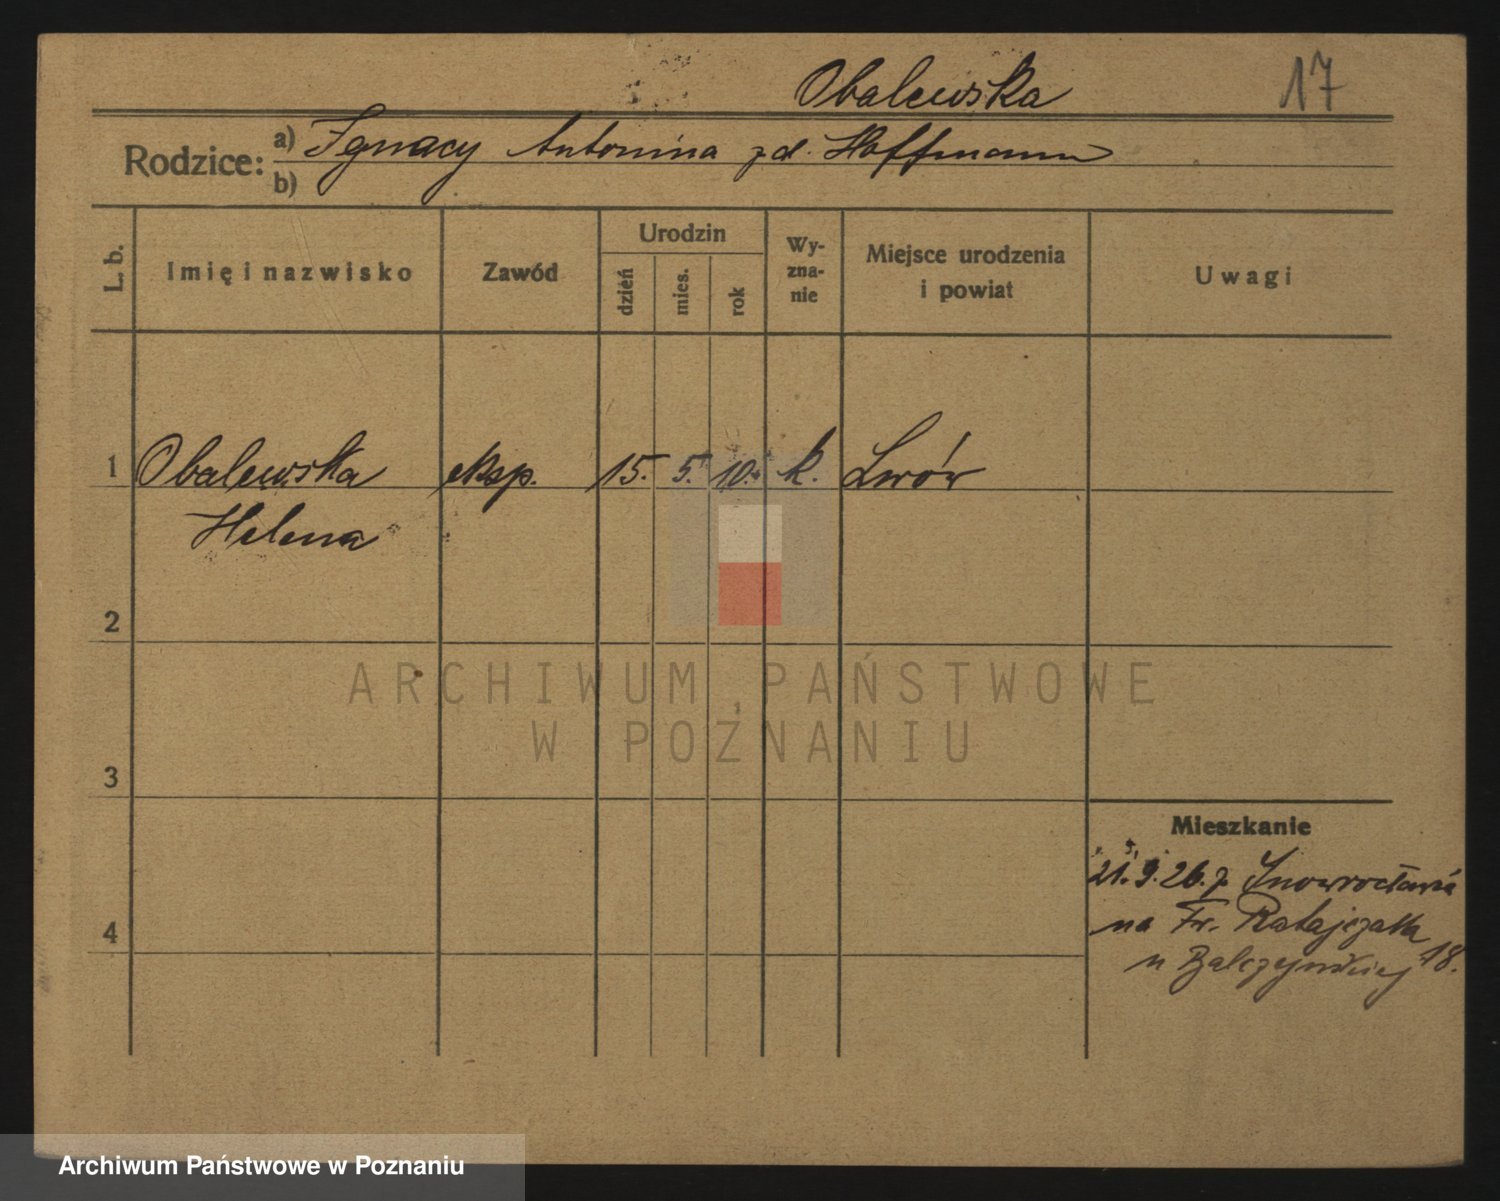 Obalewska 17
Rodzice: a) Ignacy Antonina zd. Hoffmann
b)
L. b. Imię i nazwisko Zawód Urodzin dzień mies. rok Wy-zna-nie Miejsce urodzenia i powiat Uwagi
1 Obalewska eksp. 15. 5. 10. k. Lwów
Helena
2
ARCHIWUM PAŃSTWOWE
W POZNANIU
3
Mieszkanie
21. 9. 26. z Inowrocławia
na Fr. Ratajczaka
4
u 18.
Archiwum Państwowe w Poznaniu